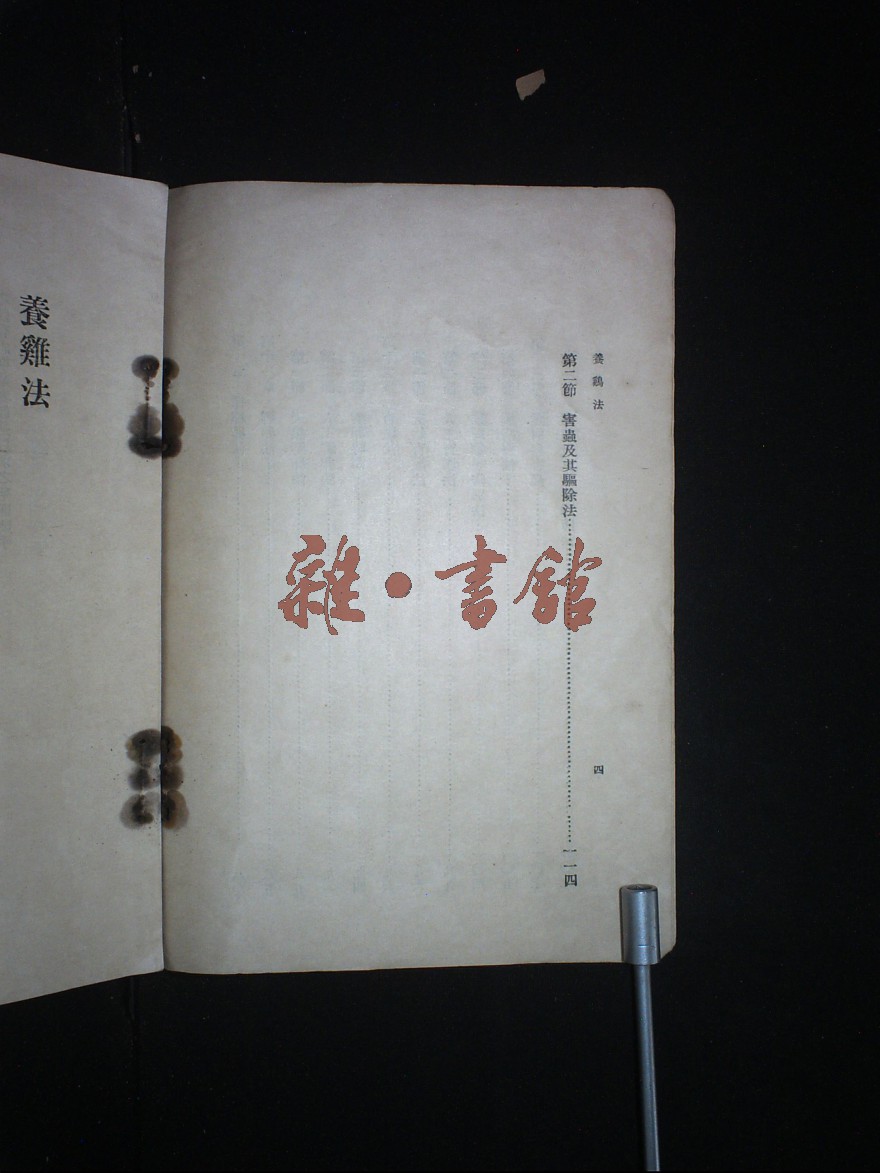 養鷄法
四
第二節 害蟲及其驅除法……一一四
養雞法
雜·書館